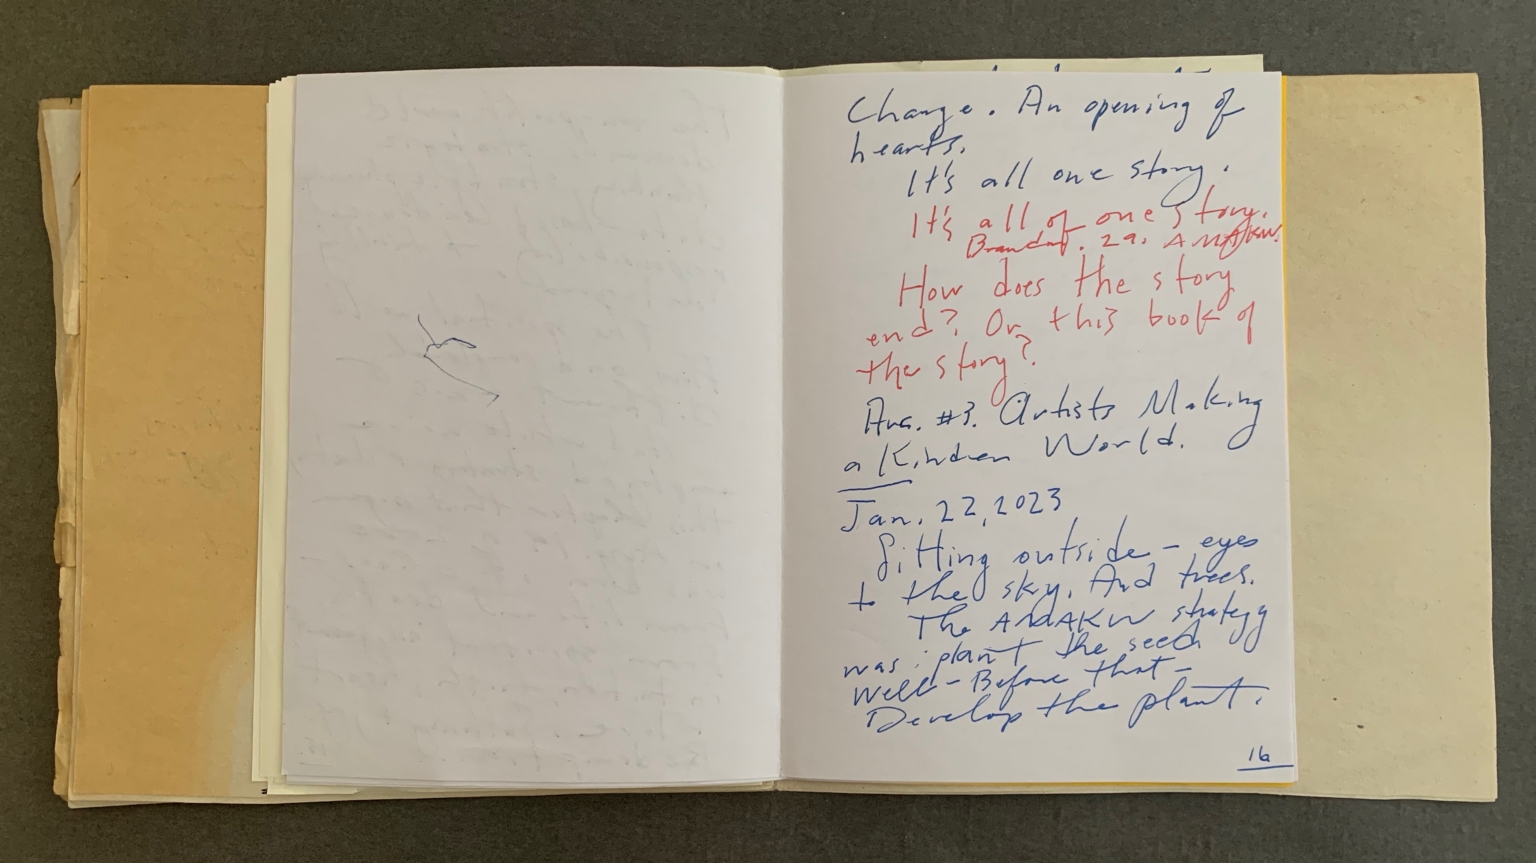 Change. An opening of
hearts.
It's all one story.
It's all of one story.
29. AMAKW.
How does the story
end? Or this book of
the story?
#3. Artists Making
a Kinder World.
Jan. 22, 2023
Sitting outside – eyes
to the sky. And trees.
The AMAKW strategy
was: plant the seed
well – Before that –
Develop the plant.
16